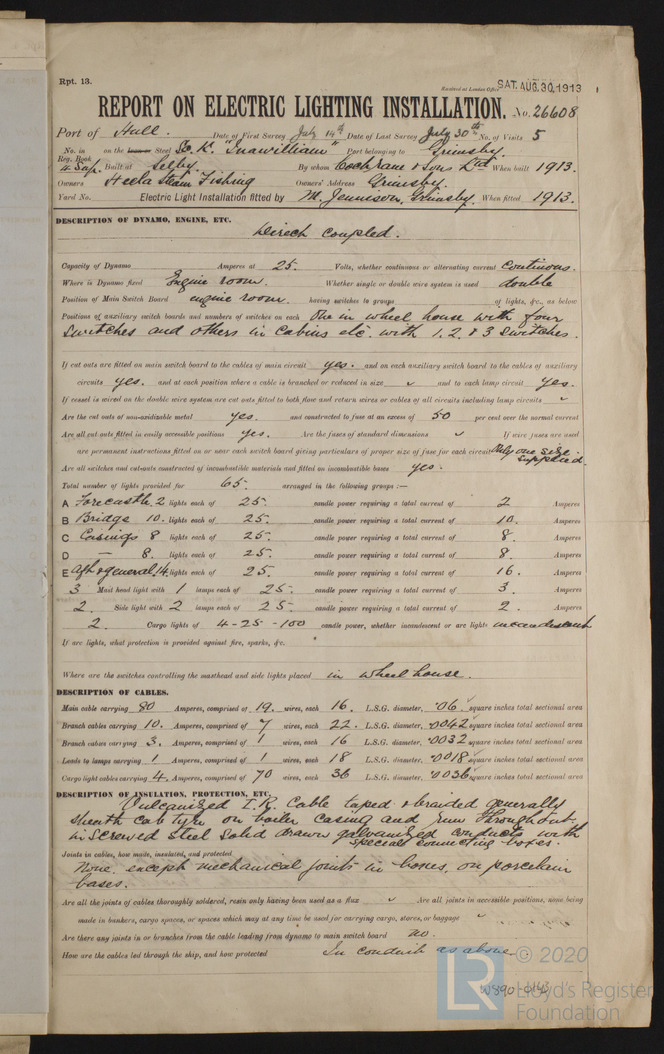 Rpt. 13.
Received at London Office SAT. AUG. 30. 1913
REPORT ON ELECTRIC LIGHTING INSTALLATION. No. 26608
Port of Hull. Date of First Survey July 14th Date of Last Survey July 30th No. of Visits 5
No. in Reg. Book on the Iron or Steel Sc. K. "Inawilliam" Port belonging to Grimsby.
4 Sup. Built at Selby By whom Cochrane & Sons Ltd When built 1913.
Owners Hecla Steam Fishing Owners' Address Grimsby.
Yard No. Electric Light Installation fitted by M. Jennison, Grimsby. When fitted 1913.
DESCRIPTION OF DYNAMO, ENGINE, ETC.
Direct Coupled.
Capacity of Dynamo Amperes at 25. Volts, whether continuous or alternating current Continous.
Where is Dynamo fixed Engine room. Whether single or double wire system is used double
Position of Main Switch Board engine room. having switches to groups of lights, &c., as below
Positions of auxiliary switch boards and numbers of switches on each One in wheel house with four
switches and others in cabins etc. with 1, 2 & 3 switches.
If cut outs are fitted on main switch board to the cables of main circuit yes. and on each auxiliary switch board to the cables of auxiliary
circuits yes. and at each position where a cable is branched or reduced in size ✓ and to each lamp circuit yes.
If vessel is wired on the double wire system are cut outs fitted to both flow and return wires or cables of all circuits including lamp circuits ✓
Are the cut outs of non-oxidizable metal yes. and constructed to fuse at an excess of 50 per cent over the normal current
Are all cut outs fitted in easily accessible positions yes. Are the fuses of standard dimensions ✓ If wire fuses are used
are permanent instructions fitted on or near each switch board giving particulars of proper size of fuse for each circuit Only one size supplied.
Are all switches and cut-outs constructed of incombustible materials and fitted on incombustible bases yes.
Total number of lights provided for 65. arranged in the following groups :—
A Forecastle 2 lights each of 25. candle power requiring a total current of 2 Amperes
B Bridge 10. lights each of 25. candle power requiring a total current of 10. Amperes
C Casings 8 lights each of 25. candle power requiring a total current of 8. Amperes
D — 8. lights each of 25. candle power requiring a total current of 8. Amperes
E Aft & general 14. lights each of 25. candle power requiring a total current of 16. Amperes
3 Mast head light with 1 lamps each of 25. candle power requiring a total current of 3. Amperes
2. Side light with 2 lamps each of 25. candle power requiring a total current of 2. Amperes
2. Cargo lights of 4-25-100 candle power, whether incandescent or arc lights incandescent
If arc lights, what protection is provided against fire, sparks, &c.
Where are the switches controlling the masthead and side lights placed in wheelhouse.
DESCRIPTION OF CABLES.
Main cable carrying 80 Amperes, comprised of 19. wires, each 16. L.S.G. diameter, .06. square inches total sectional area
Branch cables carrying 10. Amperes, comprised of 7 wires, each 22. L.S.G. diameter, .0042 square inches total sectional area
Branch cables carrying 3. Amperes, comprised of 1 wires, each 16 L.S.G. diameter, .0032 square inches total sectional area
Leads to lamps carrying 1 Amperes, comprised of 1 wires, each 18 L.S.G. diameter, .0018 square inches total sectional area
Cargo light cables carrying 4. Amperes, comprised of 70 wires, each 36 L.S.G. diameter, .0036 square inches total sectional area
DESCRIPTION OF INSULATION, PROTECTION, ETC.
Vulcanized I.R. Cable taped & braided generally
sheath cab tyre on boiler casing and run throughout
in screwed steel solid drawn galvanized conduits with
special connecting boxes.
Joints in cables, how made, insulated, and protected
None. except mechanical joints in boxes, on porcelain
bases.
Are all the joints of cables thoroughly soldered, resin only having been used as a flux ✓ Are all joints in accessible positions, none being
made in bunkers, cargo spaces, or spaces which may at any time be used for carrying cargo, stores, or baggage ✓
Are there any joints in or branches from the cable leading from dynamo to main switch board no.
How are the cables led through the ship, and how protected In conduit as above.
© 2020
LR Lloyd's Register
Foundation
W890-0143